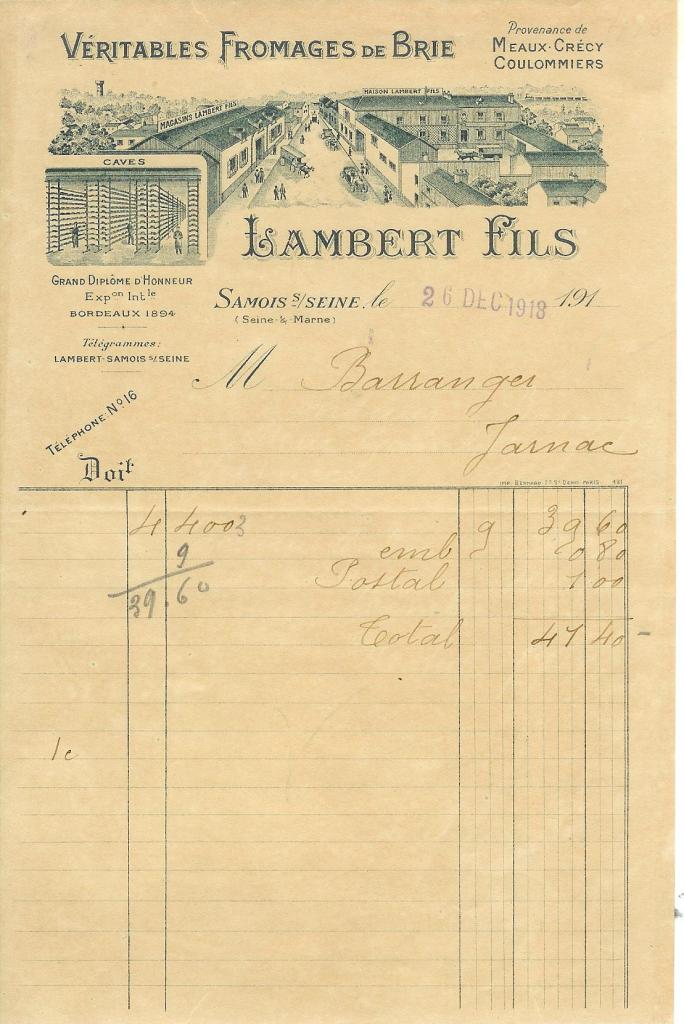 VÉRITABLES FROMAGES DE BRIE
Provenance de
MEAUX-CRÉCY
COULOMMIERS
MAGASINS LAMBERT FILS
MAISON LAMBERT FILS
CAVES
LAMBERT FILS
GRAND DIPLÔME D'HONNEUR
Expon Intle
BORDEAUX 1894
Télégrammes:
LAMBERT-SAMOIS S/SEINE
TÉLÉPHONE Nº 16
SAMOIS S/SEINE, le 26 DEC 1918 191
(Seine-&-Marne)
M Barranger
Jarnac
Doit
IMP. BERNARD
PARIS
4 4 400 9 39 60
9 emb 9 0 80
39.60 Postal 1 00
Total 41 40 -
1c